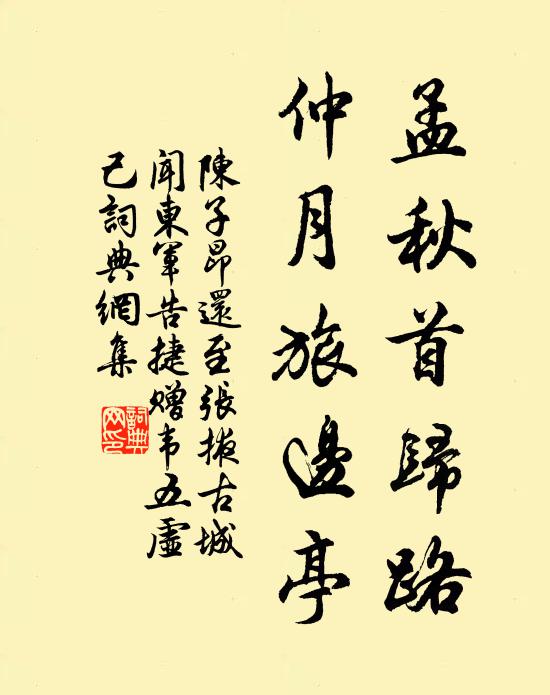 孟秋首歸路
仲月旅邊亭
陳子昂還至張掖古城
聞東軍告捷贈韦五虛
己詞典網集
詞典
网印